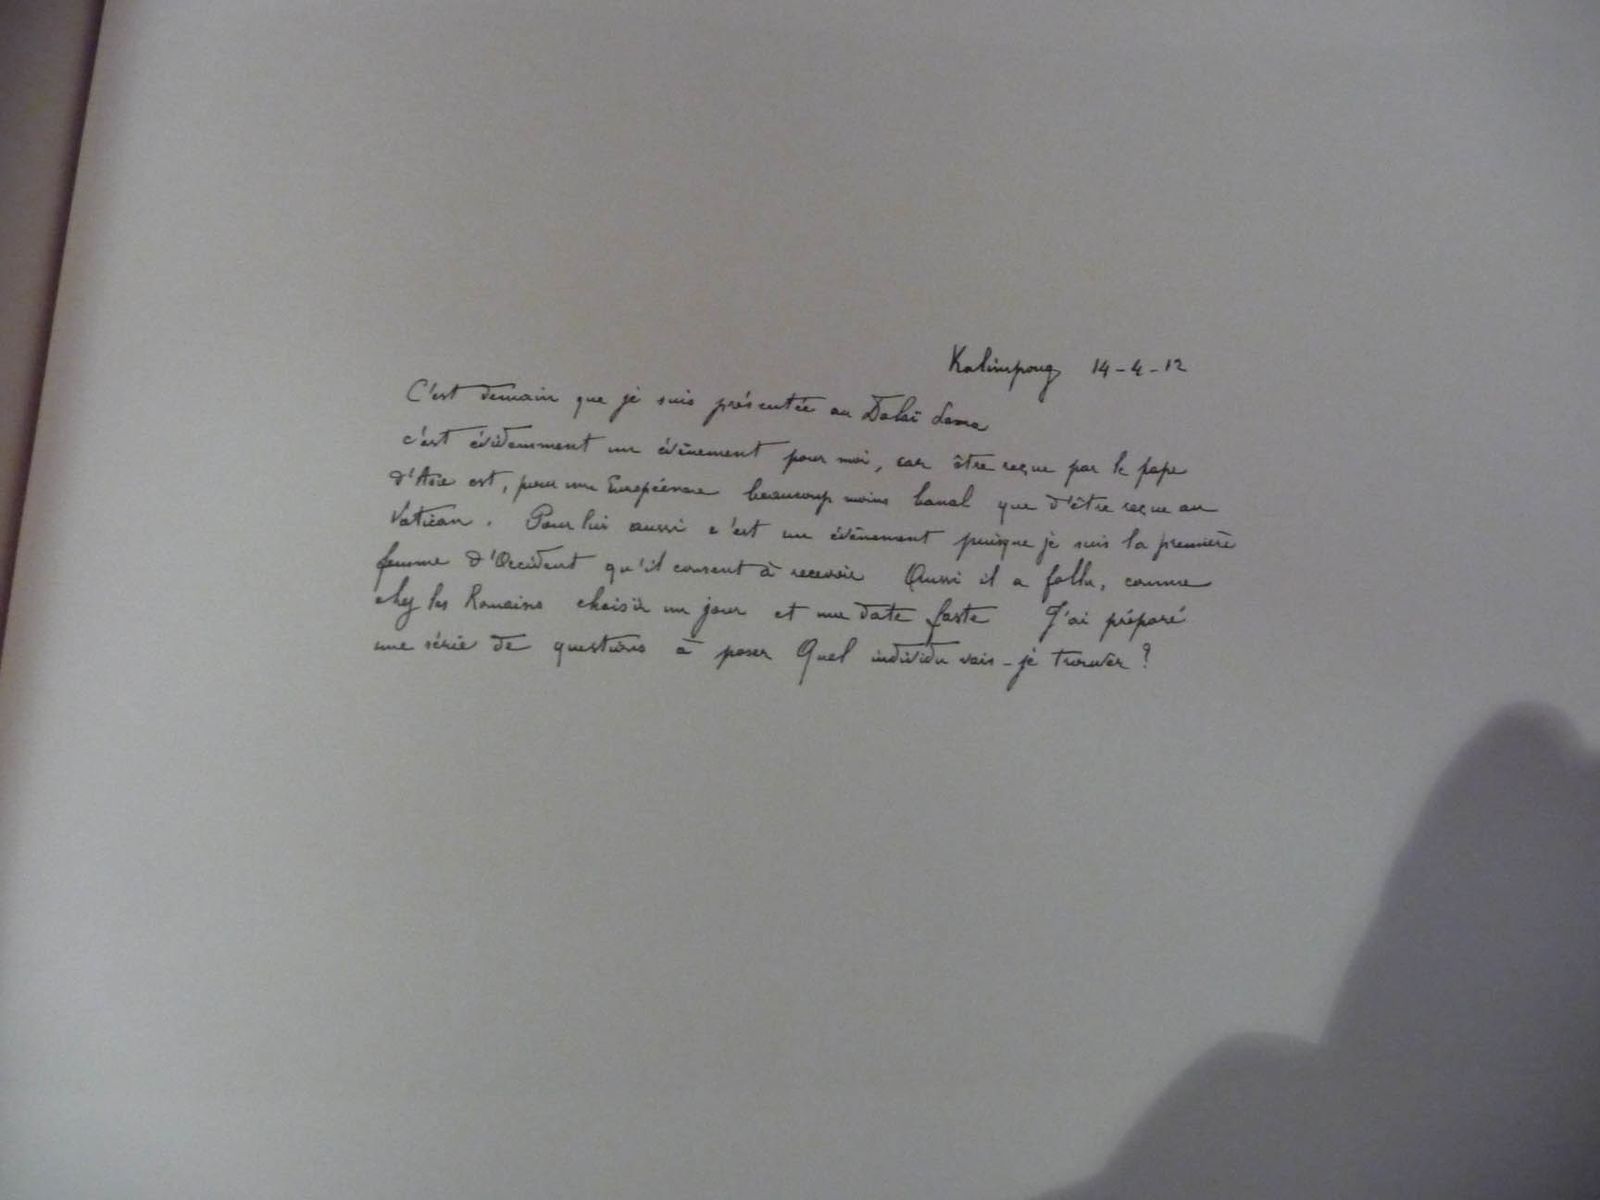 Kalimpong 14-4-12
C'est demain que je suis présentée au Dalaï Lama
c'est évidemment un évènement pour moi, car être reçue par le pape
d'Asie est, pour une Européenne beaucoup moins banal que d'être reçue au
Vatican. Pour lui aussi c'est un évènement puisque je suis la première
femme d'Occident qu'il consent à recevoir Aussi il a fallu, comme
chez les Romains choisir un jour et une date faste J'ai préparé
une série de questions à poser Quel individu vais-je trouver ?